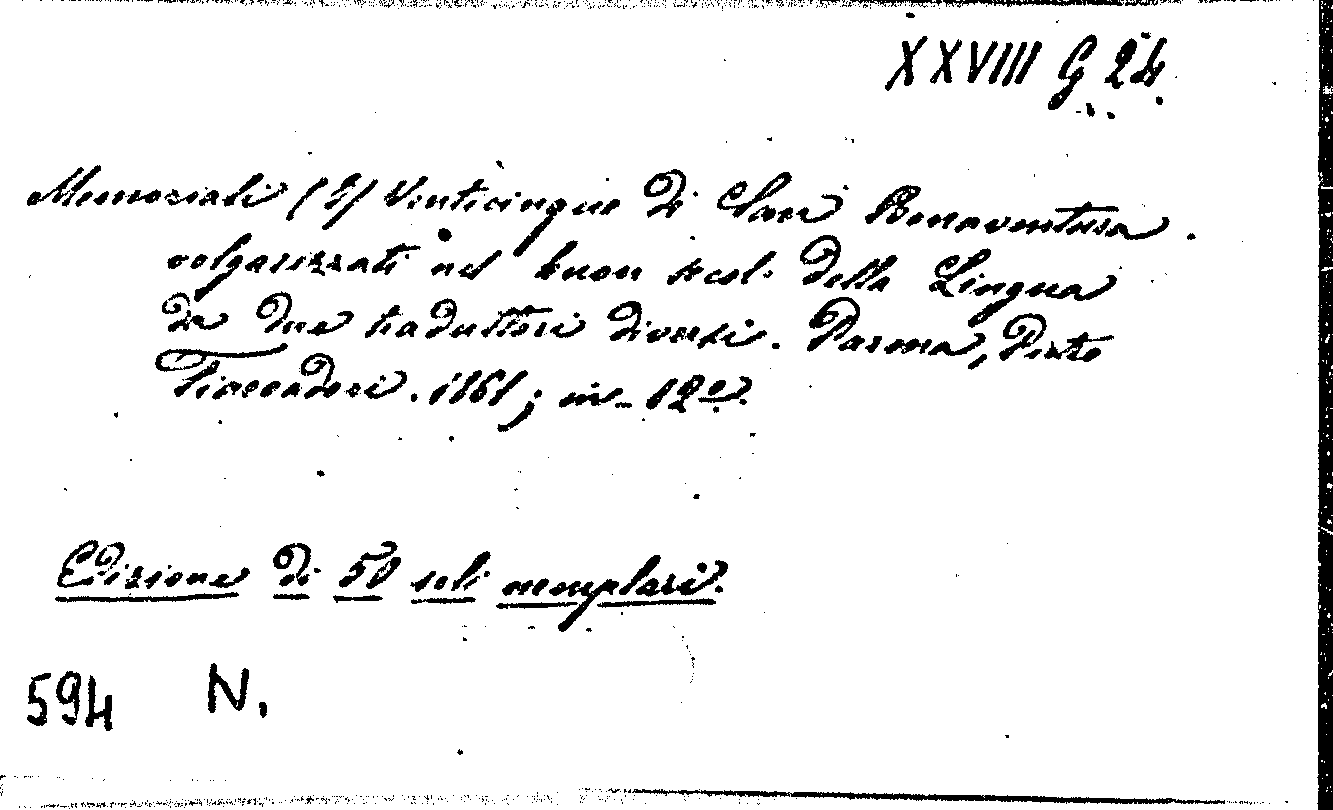 XXVIII G 24
Memoriali (I) Venticinque di San Bonaventura.
volgarizzati nel buon secol. della Lingua
da due traduttori diversi. Parma, Pietro
Fiaccadori. 1861; in-12º.
Edizione di 50 soli esemplari.
594 N.